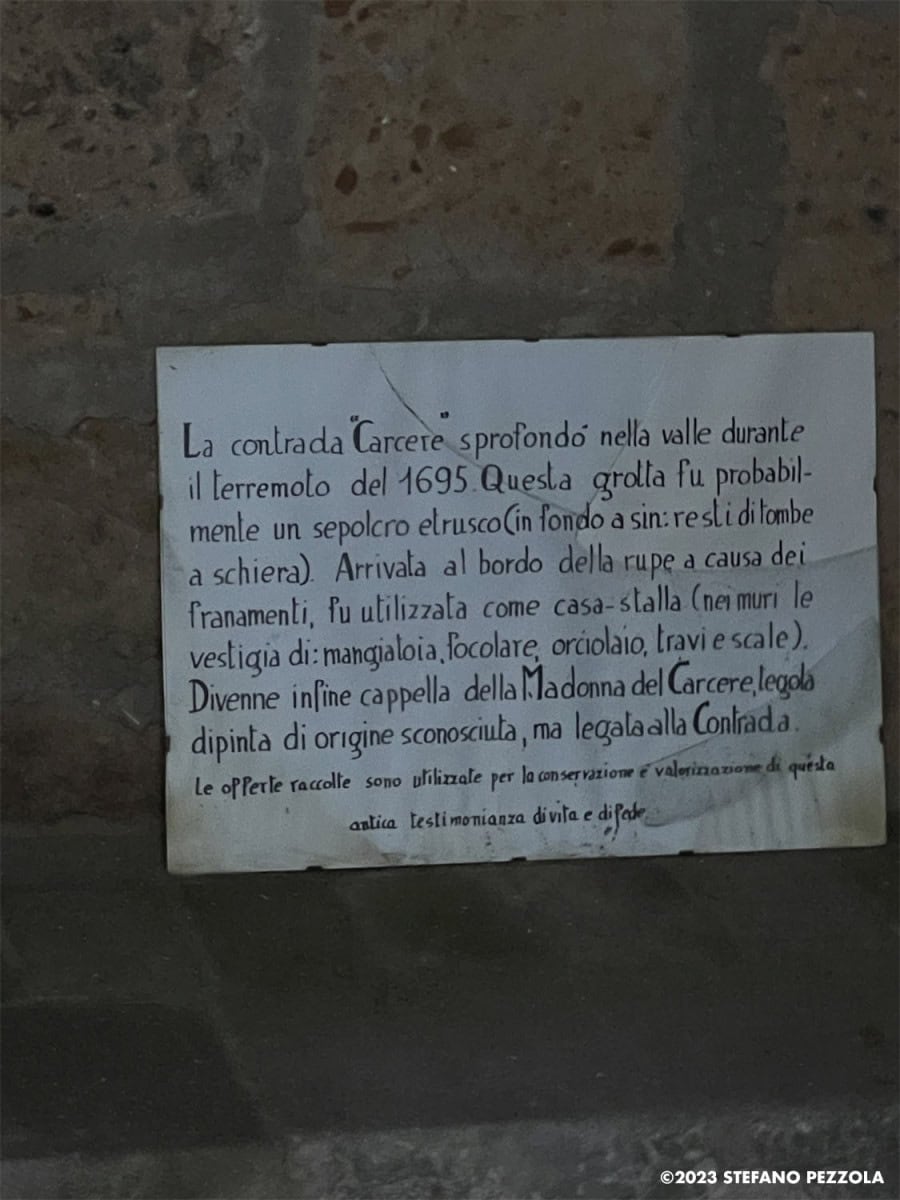 La contrada "Carcere" sprofondó nella valle durante
il terremoto del 1695. Questa grotta fu probabil-
mente un sepolcro etrusco (in fondo a sin: resti di tombe
a schiera). Arrivata al bordo della rupe a causa dei
franamenti, fu utilizzata come casa-stalla (nei muri le
vestigia di: mangiatoia, focolare, orciolaio, travi e scale).
Divenne infine cappella della Madonna del Carcere, tegola
dipinta di origine sconosciuta, ma legata alla Contrada.
Le offerte raccolte sono utilizzate per la conservazione e valorizzazione di questa
antica testimonianza di vita e di fede.
©2023 STEFANO PEZZOLA